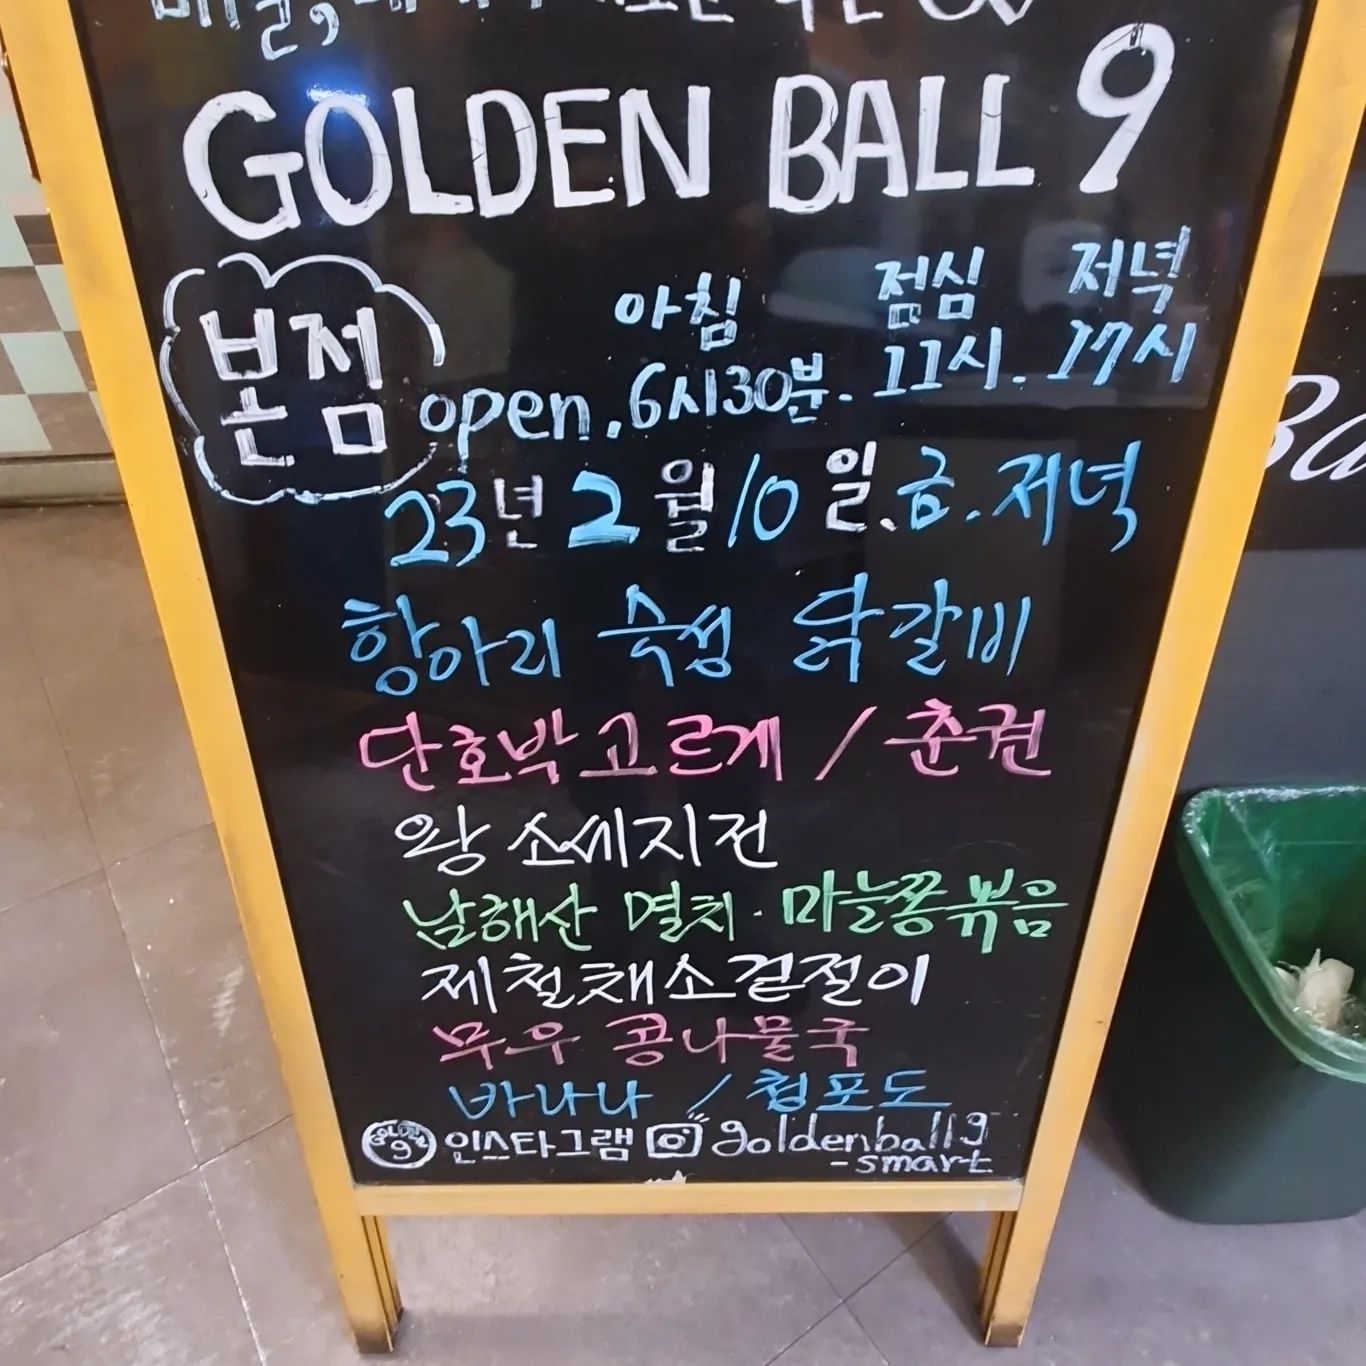 GOLDEN BALL 9
본점
아침 점심 저녁
open. 6시30분. 11시. 17시
23년 2월 10일. 금. 저녁
항아리 숙성 닭갈비
단호박고르게 / 춘권
왕 소세지전
남해산 멸치·마늘쫑볶음
제철채소겉절이
무우 콩나물국
바나나 / 청포도
GOLDEN 9 인스타그램 goldenball9
-smart